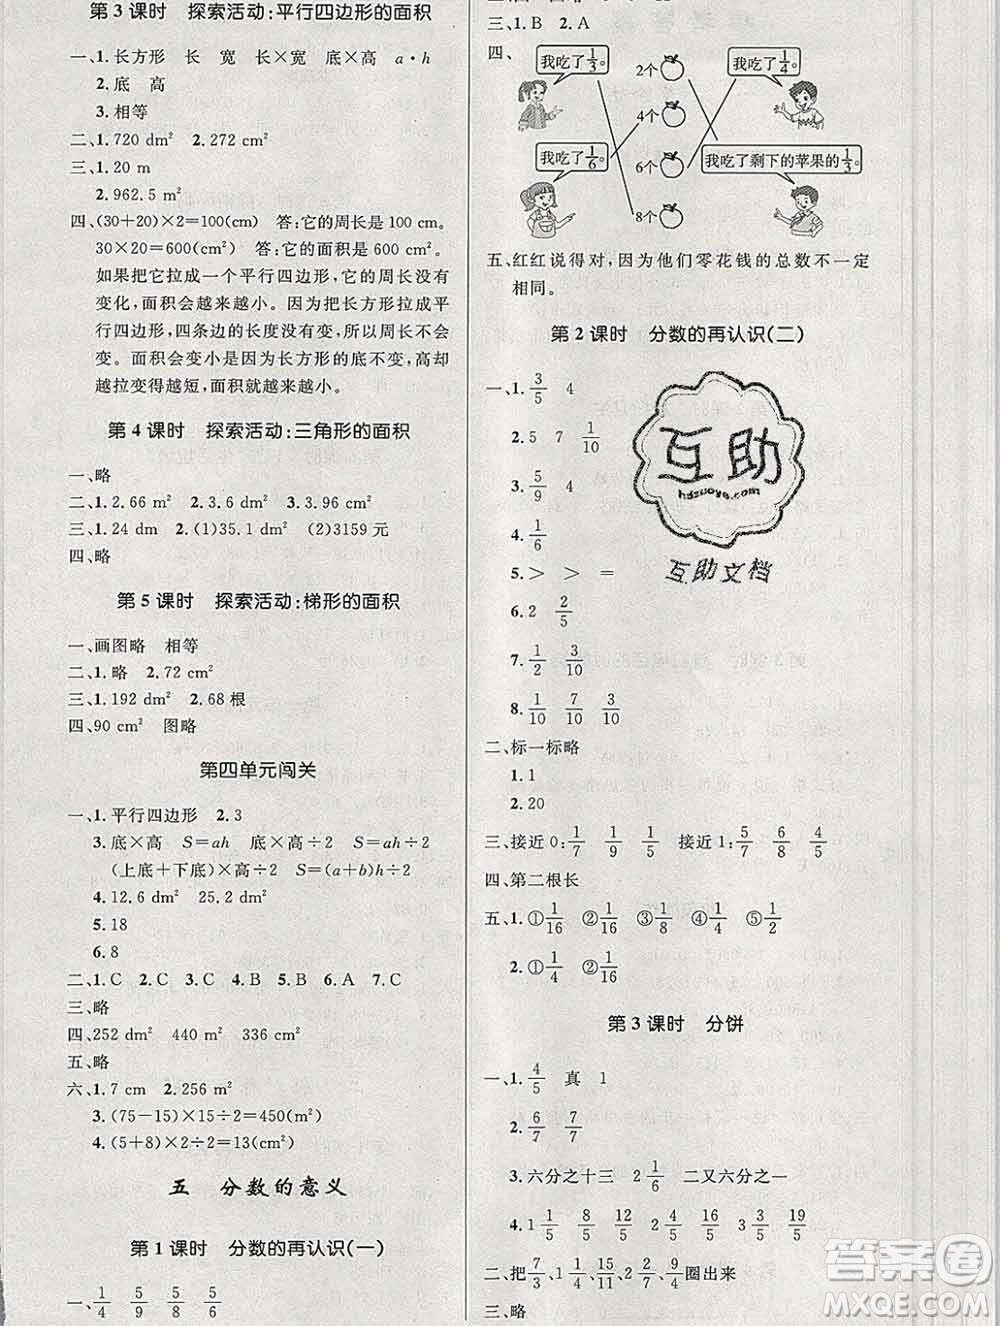 第3课时 探索活动:平行四边形的面积
一、1.长方形 长 宽 长×宽 底×高 a·h
2.底 高
3.相等
二、1.720 dm² 2.272 cm²
三、1.20 m
2.962.5 m²
四、(30+20)×2=100(cm) 答:它的周长是 100 cm.
30×20=600(cm²) 答:它的面积是 600 cm².
如果把它拉成一个平行四边形,它的周长没有
变化,面积会越来越小。因为把长方形拉成平
行四边形,四条边的长度没有变,所以周长不会
变。面积会变小是因为长方形的底不变,高却
越拉变得越短,面积就越来越小。
第4课时 探索活动:三角形的面积
一、略
二、1.2.66 m² 2.3.6 dm² 3.3.96 cm²
三、1.24 dm 2.(1)35.1 dm² (2)3159 元
四、略
第5课时 探索活动:梯形的面积
一、画图略 相等
二、1.略 2.72 cm²
三、1.192 dm² 2.68 根
四、90 cm² 图略
第四单元闯关
一、1.平行四边形 2.3
3.底×高 S=ah 底×高÷2 S=ah÷2
(上底+下底)×高÷2 S=(a+b)h÷2
4.12.6 dm² 25.2 dm²
5.18
6.8
二、1.C 2.C 3.C 4.B 5.B 6.A 7.C
三、略
四、252 dm² 440 m² 336 cm²
五、略
六、1.7 cm 2.256 m²
3.(75-15)×15÷2=450(m²)
4.(5+8)×2÷2=13(cm²)
五 分数的意义
第1课时 分数的再认识(一)
一、1/4 5/9 5/8 5/6
三、1.B 2.A
四、
我吃了1/3。 2个 我吃了1/4。
4个
我吃了1/6。 6个 我吃了剩下的苹果的1/3。
8个
五、红红说得对,因为他们零花钱的总数不一定
相同。
第2课时 分数的再认识(二)
一、1.3/5 4
2.5 7 1/10
3.5/9 4
4.1/6
5.> > =
6.2 2/5
7.1/10 3/10
8.1/10 7/10 3/10
二、标一标略
1.1
2.20
三、接近 0:1/7 1/9 1/5 接近 1:5/7 6/8 4/5
四、第二根长
五、1.①1/16 ②1/16 ③1/8 ④1/4 ⑤1/16
2.①1/4 ②1/16
第3课时 分饼
一、1.4/5 真 1
2.6/7 7/7
3.六分之十三 2 1/6 二又六分之一
4.1/5 8/5 1/5 2/5 3/5 19/5
二、把7/3、1/1、15/11、2/2、9/4圈出来
三、略
互助
hdzuoye.com
互助文档
答案圈
MXQE.COM